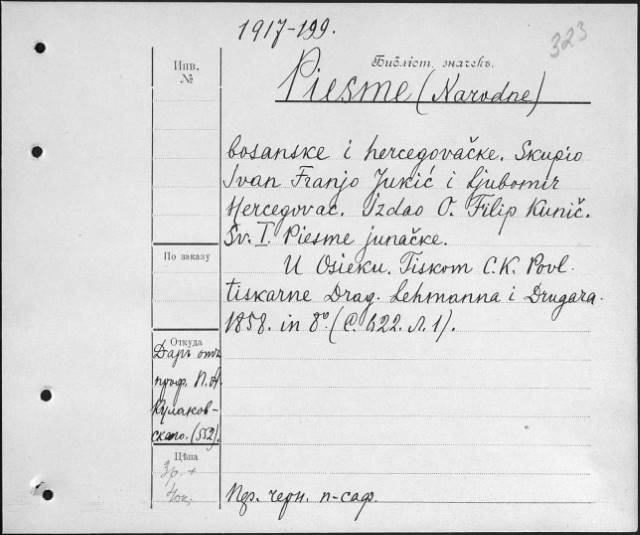 1917-199.
323
Инв.
№
Библіот. значекъ.
Piesme (Narodne)
bosanske i hercegovačke. Skupio
Ivan Franjo Jukić i Ljubomir
Hercegovac. Izdao O. Filip Kunić.
Sv. I. Piesme junačke.
По заказу
U Osieku. Tiskom C. K. Povl.
tiskarne Drag. Lehmanna i Drugara.
1858. in 8º. (C. 622. л. 1).
Откуда
Даръ отъ
проф. П. А.
Кулаков-
скаго. (552).
Цѣна
3р. +
Пер. черн. п-саф.